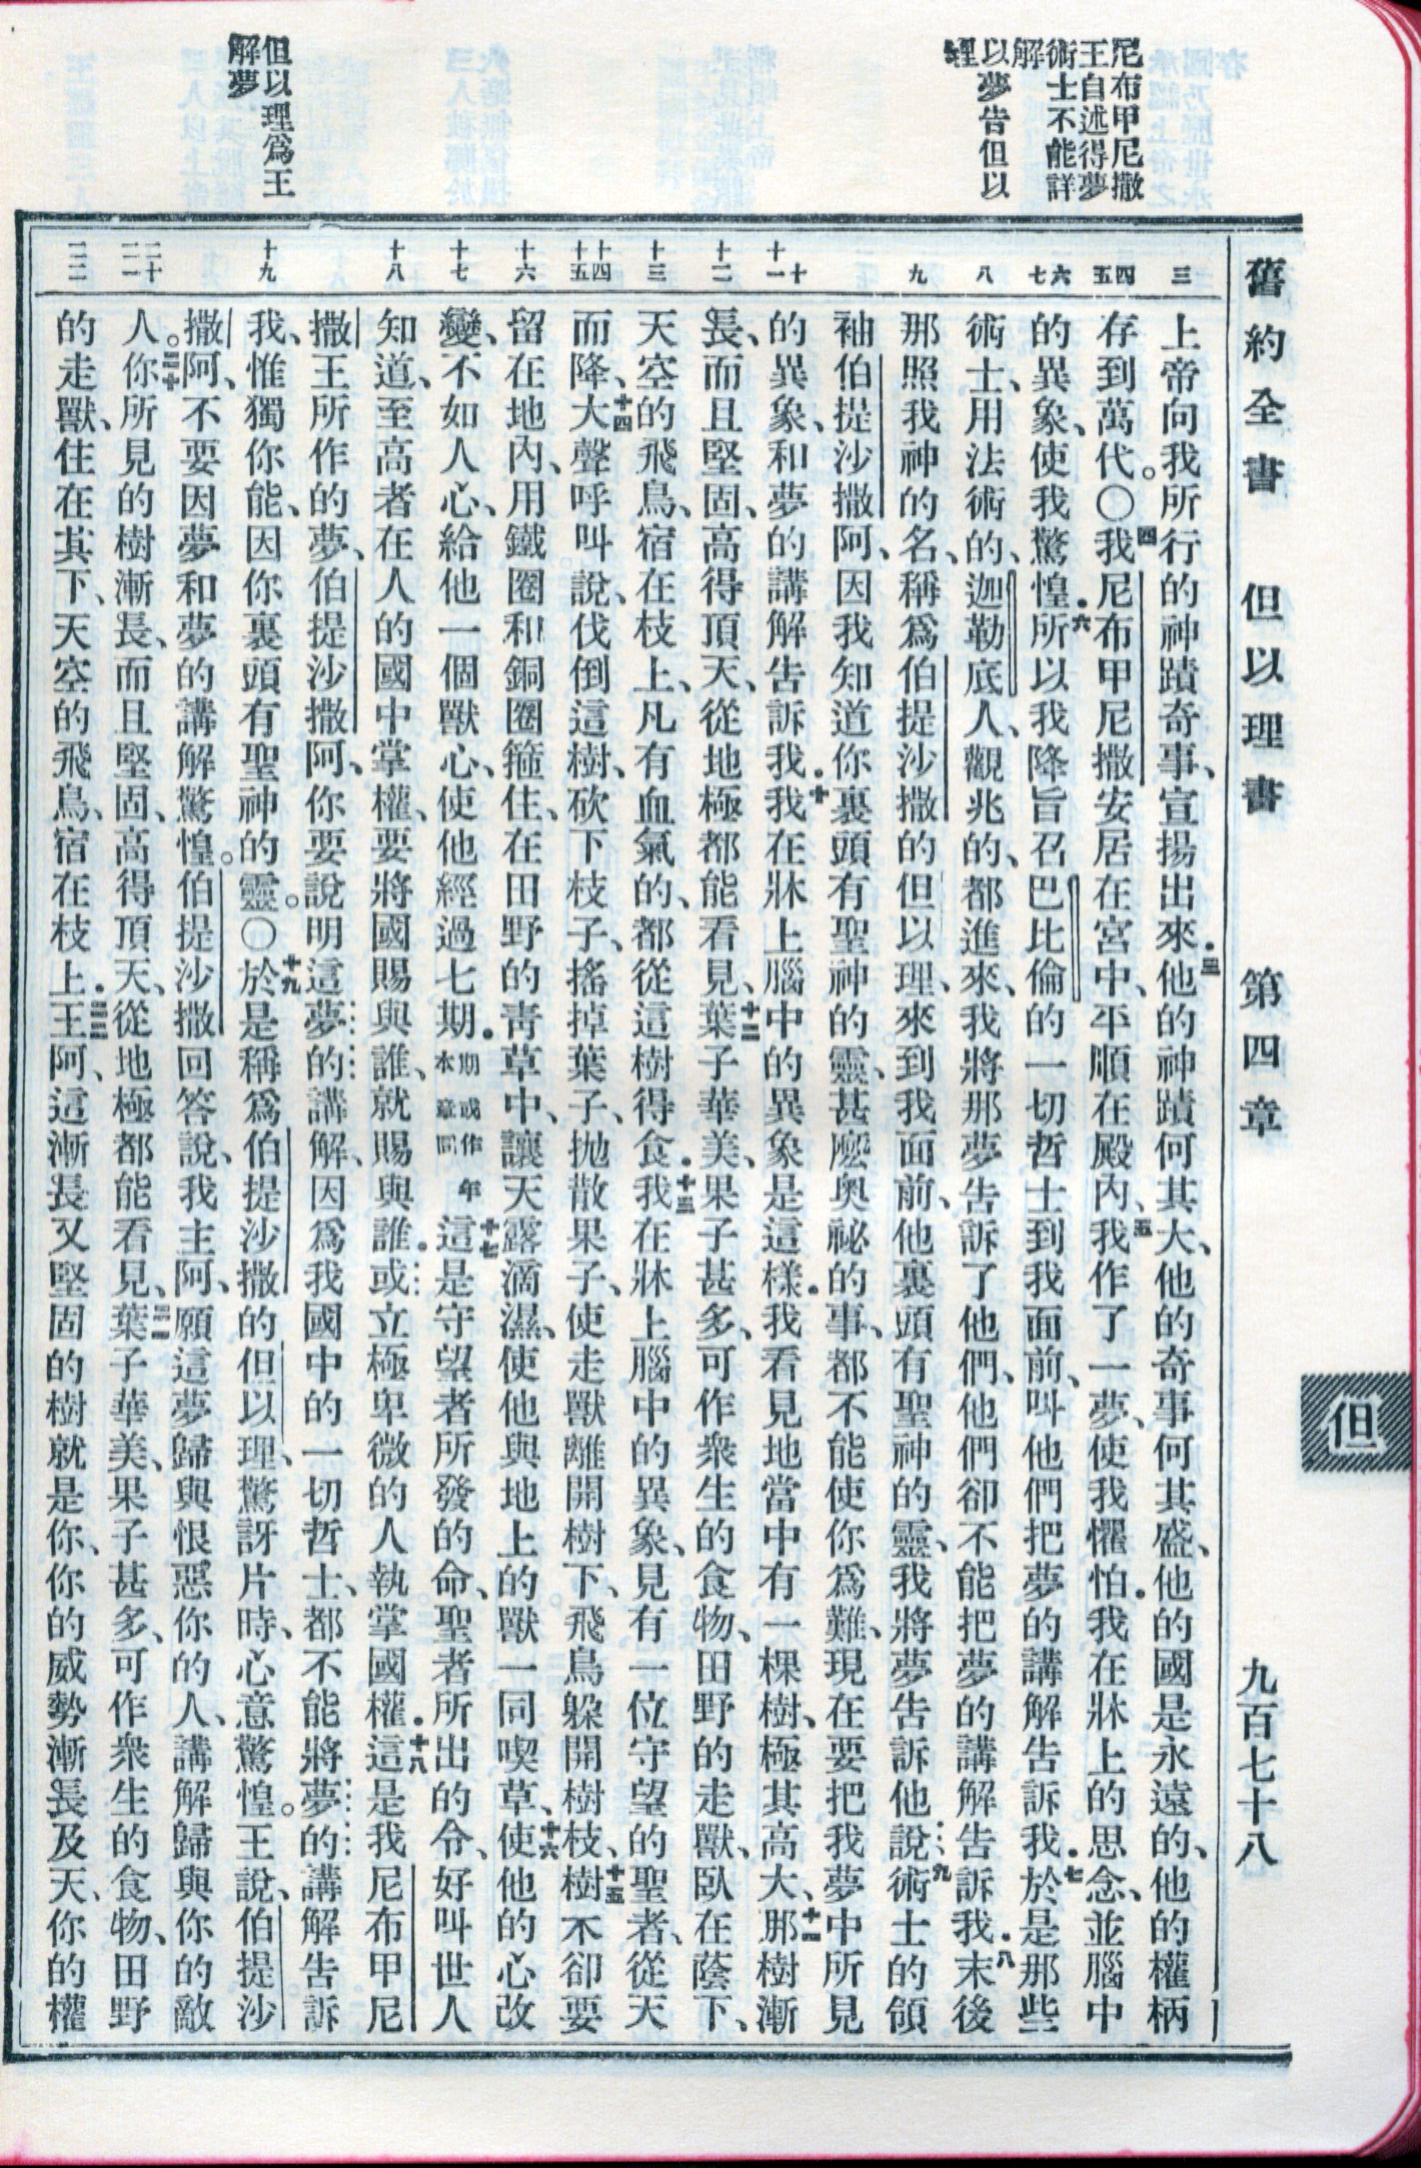 舊約全書 但以理書 第四章 九百七十八
但
尼布甲尼撒
王自述得夢
術士不能詳
解
以夢告但以
理
但以理為王
解夢
三
四
五
六
七
八
九
十
十一
十二
十三
十四
十五
十六
十七
十八
十九
二十
二一
二二
上帝向我所行的神蹟奇事、宣揚出來．三他的神蹟何其大、他的奇事何其盛、他的國是永遠的、他的權柄
存到萬代。○四我尼布甲尼撒安居在宮中、平順在殿內、五我作了一夢、使我懼怕．我在牀上的思念、並腦中
的異象、使我驚惶．六所以我降旨召巴比倫的一切哲士到我面前、叫他們把夢的講解告訴我．七於是那些
術士、用法術的、迦勒底人、觀兆的、都進來、我將那夢告訴了他們、他們卻不能把夢的講解告訴我．八末後
那照我神的名、稱爲伯提沙撒的但以理、來到我面前、他裏頭有聖神的靈、我將夢告訴他說、九術士的領
袖伯提沙撒阿、因我知道你裏頭有聖神的靈、甚麼奧祕的事、都不能使你爲難、現在要把我夢中所見
的異象、和夢的講解告訴我．十我在牀上腦中的異象是這樣．我看見地當中有一棵樹、極其高大、十一那樹漸
長、而且堅固、高得頂天、從地極都能看見、十二葉子華美、果子甚多、可作衆生的食物、田野的走獸、臥在蔭下、
天空的飛鳥、宿在枝上、凡有血氣的、都從這樹得食．十三我在牀上腦中的異象、見有一位守望的聖者、從天
而降、十四大聲呼叫說、伐倒這樹、砍下枝子、搖掉葉子、拋散果子、使走獸離開樹下、飛鳥躲開樹枝、十五樹不卻要
留在地內、用鐵圈和銅圈箍住、在田野的靑草中、讓天露滴濕、使他與地上的獸一同喫草、十六使他的心改
變、不如人心、給他一個獸心、使他經過七期．期或作年本章同十七這是守望者所發的命、聖者所出的令、好叫世人
知道、至高者在人的國中掌權、要將國賜與誰、就賜與誰．或立極卑微的人執掌國權．十八這是我尼布甲尼
撒王所作的夢、伯提沙撒阿、你要說明這夢的講解、因爲我國中的一切哲士、都不能將夢的講解告訴
我、惟獨你能、因你裏頭有聖神的靈。○十九於是稱爲伯提沙撒的但以理、驚訝片時、心意驚惶。王說、伯提沙
撒阿、不要因夢和夢的講解驚惶。伯提沙撒回答說、我主阿、願這夢歸與恨惡你的人、講解歸與你的敵
人。二十你所見的樹漸長、而且堅固、高得頂天、從地極都能看見、二一葉子華美、果子甚多、可作衆生的食物、田野
的走獸、住在其下、天空的飛鳥、宿在枝上．二二王阿、這漸長又堅固的樹就是你、你的威勢漸長及天、你的權